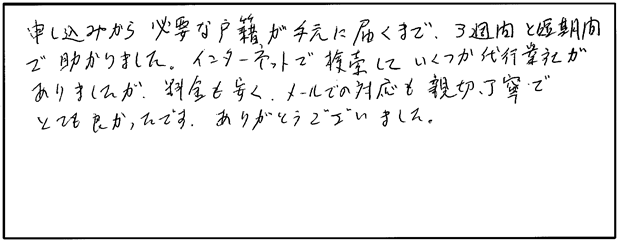 申し込みから必要な戸籍が手元に届くまで、3週間と短期間
で助かりました。インターネットで検索していくつか代行業社が
ありましたが、料金も安く、メールでの対応も親切、丁寧で
とても良かったです。ありがとうございました。